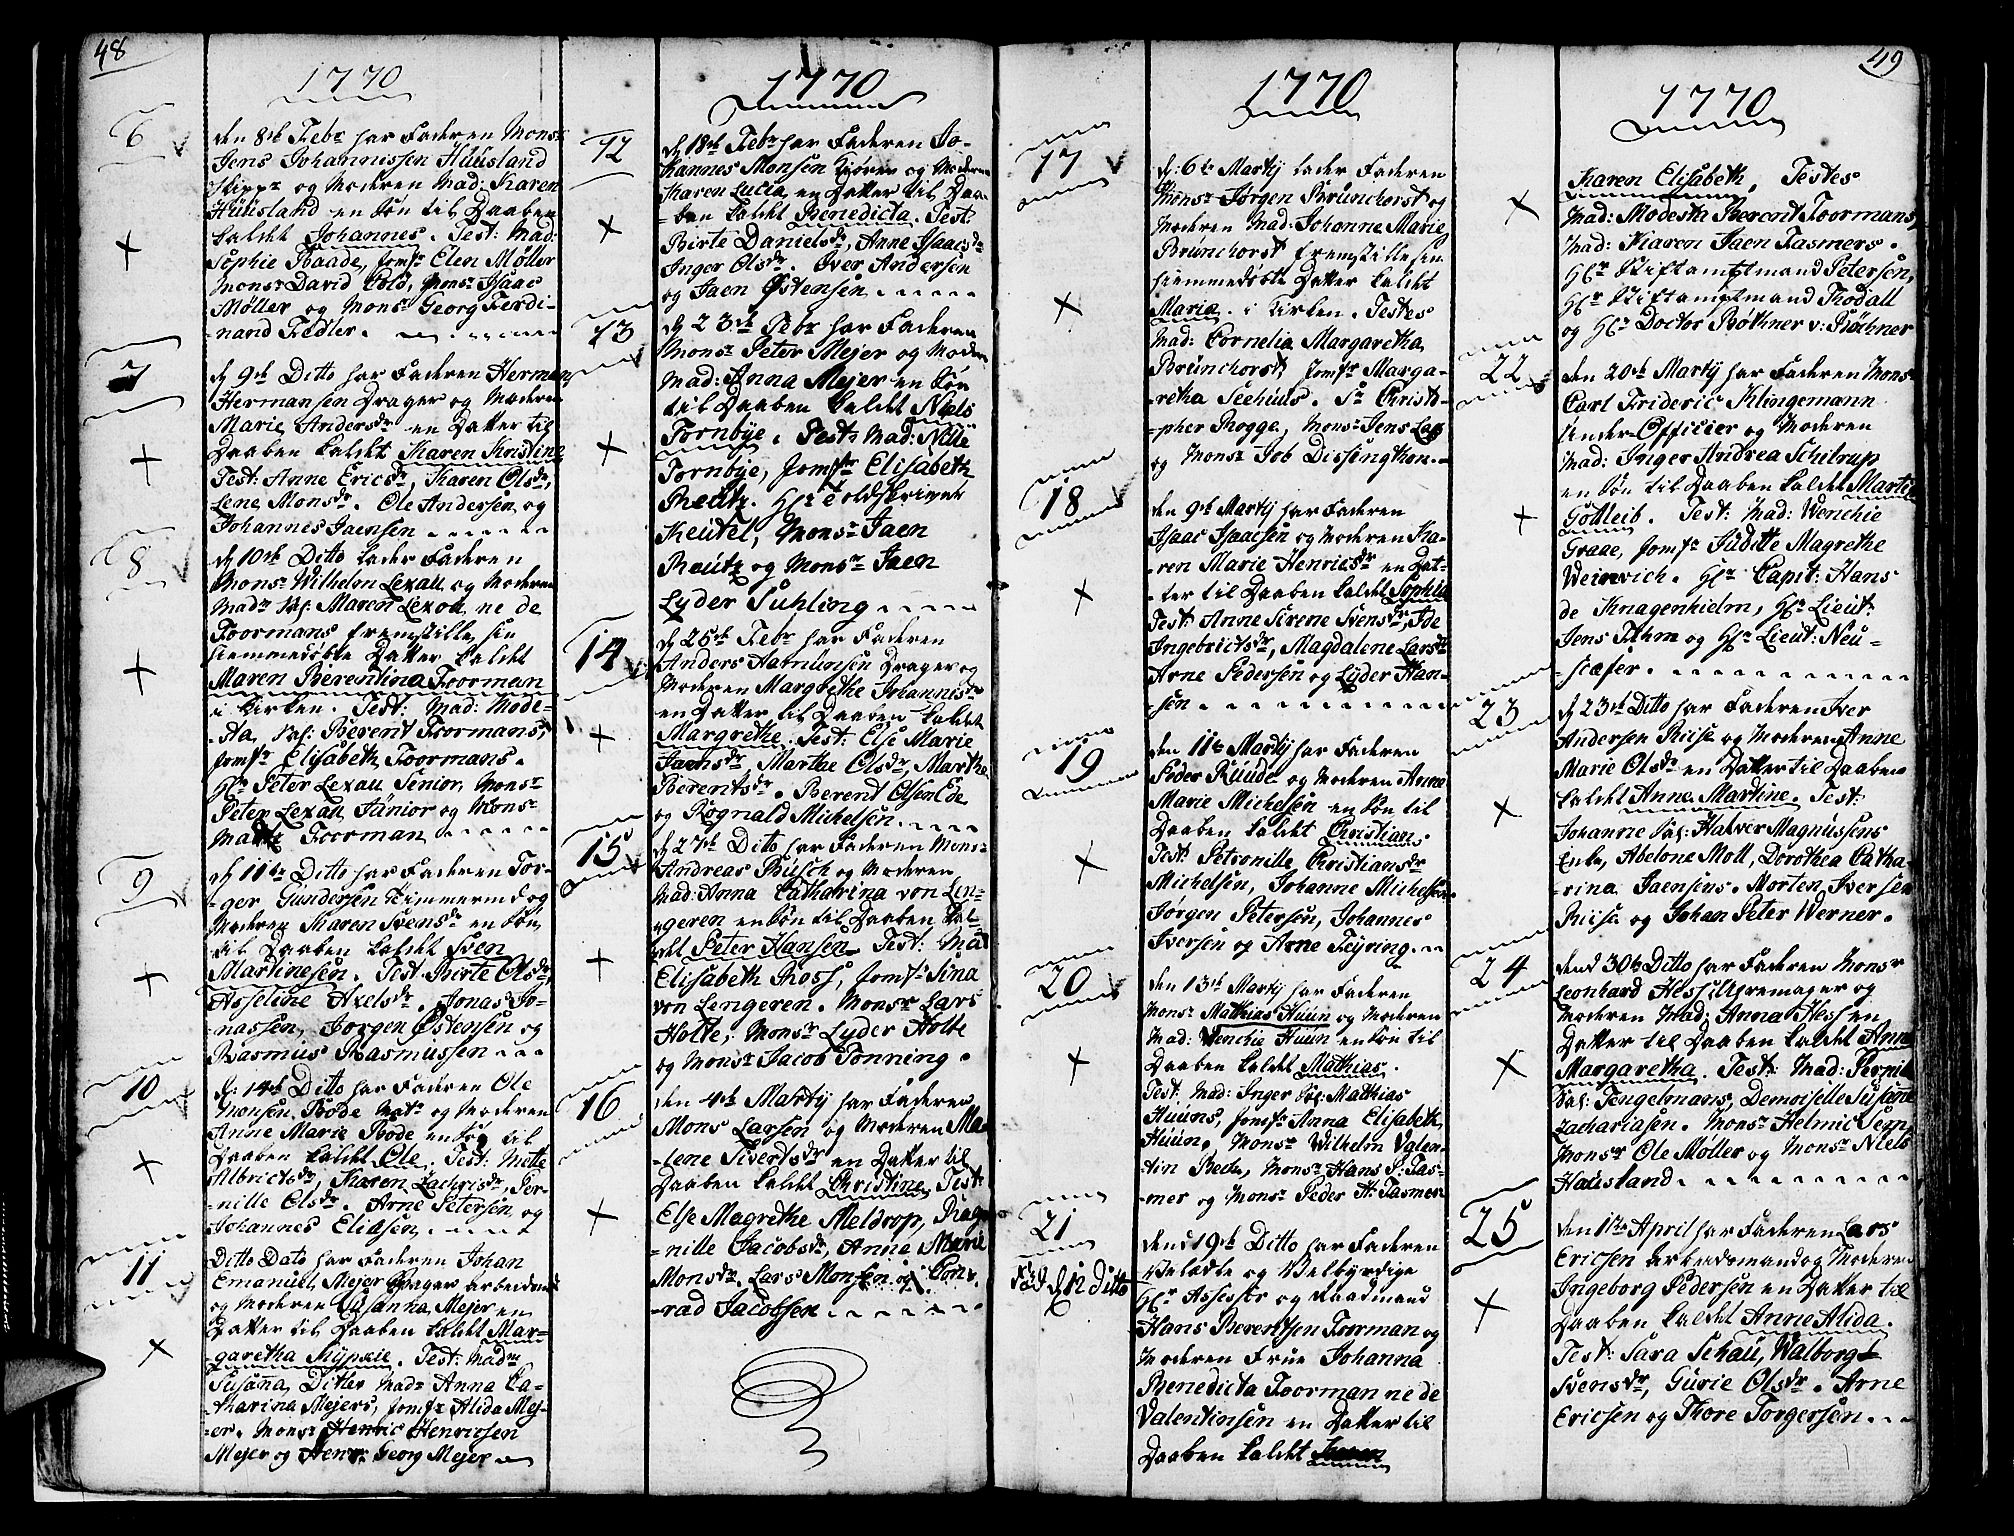 48
1770
6
den 8de Febr har Faderen Mons:
Jens Johannissen Huusland
Skippr og Moderen Mad: Karen
Huusland en Søn til Daaben
kaldet Johannes. Test: Mad:
Sophie Baade, Jomfr Elen Møller
Monsr David Cold, Monsr Isaac
Møller og Monsr Georg Ferdi-
-nand Fedler.
7
d: 9de Ditto har Faderen Herman
Hermansen Drager og Moderen
Marie Andersdr en Datter til
Daaben kaldet Karen Kristine
Test: Anne Ericsdr, Karen Olsdr,
Lene Monsdr. Ole Andersen og
Johannes Jaensen
8
d: 10de Ditto lader Faderen
Monsr Wilhelm Lexau og Moderen
Madm Sal: Maren Lexau ne de
Foormans fremstille sin
hiemmedøbte Datter kaldet
Maren Berentina Foorman
i Kirken. Test: Mad: Mode-
-sta, Sal: Berent Foormans,
Jomfr Elisabeth Foormans.
Hr Peter Lexau Senior, Monsr
Peter Lexau Junior og Monsr
Foorman
9
d: 11te Ditto har Faderen Tor-
-ger Gundersen Timmermd og
Moderen Karen Svensdr en Søn
til Daaben kaldet Sven
Martinesen. Test: Birte Olsdr,
Asseline Axelsdr. Jonas Jo-
-nassen, Jørgen Østensen og
Rasmus Rasmussen
10
d: 14de Ditto har Faderen Ole
Monsen Bode Matr og Moderen
Anne Marie Bode en Søn til
Daaben kaldet Ole. Test: Mette
Albrictsdr, Karen Zachrisdr, Per-
-nille Olsdr. Arne Petersen og
Johannes Eliasen
11
Ditto Dato har Faderen Johan
Emanuel Mejer Drager arbeidend
og Moderen Susanna Mejer en
Datter til Daaben kaldet Mar-
-garetha. Test: Madm
Susanna Ditler Madm Anna Ca-
-tharina Mejers, Jomfr Alida Mej-
-er. Monsr Henric Henricsen
Mejer og Henr: Georg Mejer
1770
12
d: 18de Febr har Faderen Jo-
hannes Monsen og Moderen
Karen Lucia en Datter til Daa-
-ben kaldet Benedicta. Test:
Birte Danielsdr, Anne Isaacsdr
Inger Olsdr. Iver Andersen
og Jaen Østensen
13
d: 23de Febr har Faderen
Monsr Peter Mejer og Moderen
Mad: Anna Mejer en Søn
til Daaben kaldet Niels
Tornbye. Test: Mad: Nille
Tornbye, Jomfr Elisabeth
Reutz. Hr Toldskriver
Keutel, Monsr Jaen
Reutz og Monsr Jaen
Lyder Suhling
14
d: 25de Febr har Faderen
Anders Aamunsen Drager og
Moderen Margrethe Johannisdr
en Datter til Daaben kaldet
Margrethe. Test: Else Marie
Jaensdr, Marthe Olsdr, Marthe
Berentsdr. Berent Olsen Ede
og Rognald Michelsen
15
d: 27de Ditto har Faderen Monsr
Andreas Busch og Moderen
Mad: Anna Catharina von Len-
-geren en Søn til Daaben kal-
det Peter Hansen. Test: Mad
Elisabeth Ross, Jomfr Sina
von Lengeren. Monsr Lars
Holte, Monsr Lyder Holte
og Monsr Jacob Tonning.
16
den 4de Martij har Faderen
Mons Larsen og Moderen Ma-
-lene Sivertsdr en Datter til
Daaben kaldet Christine, Test:
Else Magrethe Meldrop, Rag-
-nille Jacobsdr, Anne Marie
Monsdr. Lars Monsen og Con-
-rad Jacobsen
49
1770
17
d: 6te Martij lader Faderen
Monsr Jørgen Brunchorst og
Moderen Mad: Johanne Marie
Brunchorst fremstille sin
hiemmedøbte Datter kaldet
Maria. i Kirken. Testes
Mad: Cornelia Margaretha
Brunchorst Jomfr Marga-
-retha Seehuus. Sr Christo-
-pher Rogge, Monsr Jens
og Monsr Job Dissingthon.
18
den 9de Martij har Faderen
Isaac Isaacsen og Moderen Ka-
-ren Marie Henricsdr en Dat-
-ter til Daaben kaldet Sophia
Test: Anne Sirene Svensdr, Ade
Ingebrictsdr, Magdalene Larsdr
Arne Pedersen og Lyder Han-
-sen
19
den 11te Martij har Faderen
Peder Ruude og Moderen Anne
Marie Michelsen en Søn til
Daaben kaldet Christian.
Test: Petronille Christiansdr
Michelsen, Johanne Michelsen
Jørgen Petersen, Johannes
Iversen og Arne Feyring.
20
den 13de Martij har Faderen
Monsr Mathias Huun og Moderen
Mad: Wenchie Huun en Søn til
Daaben kaldet Mathias.
Test: Mad: Inger Sal: Mathias
Huuns, Jomfr Anna Elisabeth
Huun. Monsr Wilhelm Valen-
tin Beck, Monsr Hans P: Fas-
mer og Monsr Peder H: Fasmer
21
Fød d 12 Ditto
dend 19de Ditto har Faderen
Velædle og Velbyrdige
Hr Assessor og Raadmand
Hans Berentsen Foorman og
Moderen Frue Johanna
Benedicta Foorman ne de
Valentinsen en Datter til
Daaben kaldet Karen
1770
Karen Elisabeth, Testes
Mad: Modesta Berent Foormans
Mad: Karen Jaen Fasmers.
Hr Stiftamptmand Petersen,
Hr Stiftamptmand Thodall
og Hr Doctor Bøthner v: Bøthner
22
den 20de Martij har Faderen Monsr
Carl Frideric Klingemann
Under-Officier og Moderen
Mad: Inger Andrea Schitrup
en Søn til Daaben kaldet Martin
Gotleib. Test: Mad: Wenchie
Graae, Jomfr Juditte Magrethe
Weinrich. Hr Capit: Hans
de Knagenhielm, Hr Lieut:
Jens Ihm og Hr Lieut: Neu-
-scæfer.
23
d: 23de Ditto har Faderen Iver
Andersen Riise og Moderen Anne
Marie Olsdr en Datter til Daaben
kaldet Anne Martine. Test:
Johanne Sal: Halver Magnussens
Enke, Abelone Moll, Dorothea Catha-
-rina Jaensens. Morten Iversen
Riise og Johan Peter Werner.
24
dend 30te Ditto har Faderen Monsr
Leonhard Hess Uhremager og
Moderen Mad: Anna Hess en
Datter til Daaben kaldet Anne
Margaretha. Test: Mad: Pernille
Sal: Tengelmans, Demoiselle Susanne
Zachariasen. Monsr Helmic Sem,
Monsr Ole Møller og Monsr Niels
Hausland.
25
den 1ste April har Faderen Lars
Ericsen arbeidsmand og Moderen
Ingeborg Pedersen en Datter til
Daaben kaldet Anne Alida.
Test: Sara Schau, Walborg
Svensdr, Gurie Olsdr. Arne
Ericsen og Thore Torgersen.